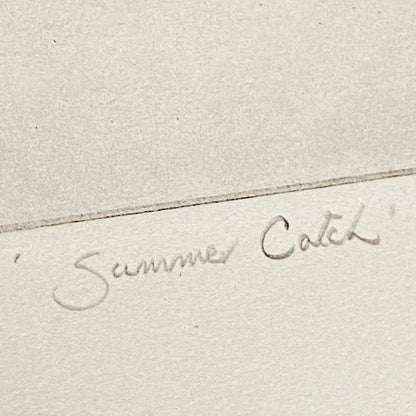 'Summer Catch'